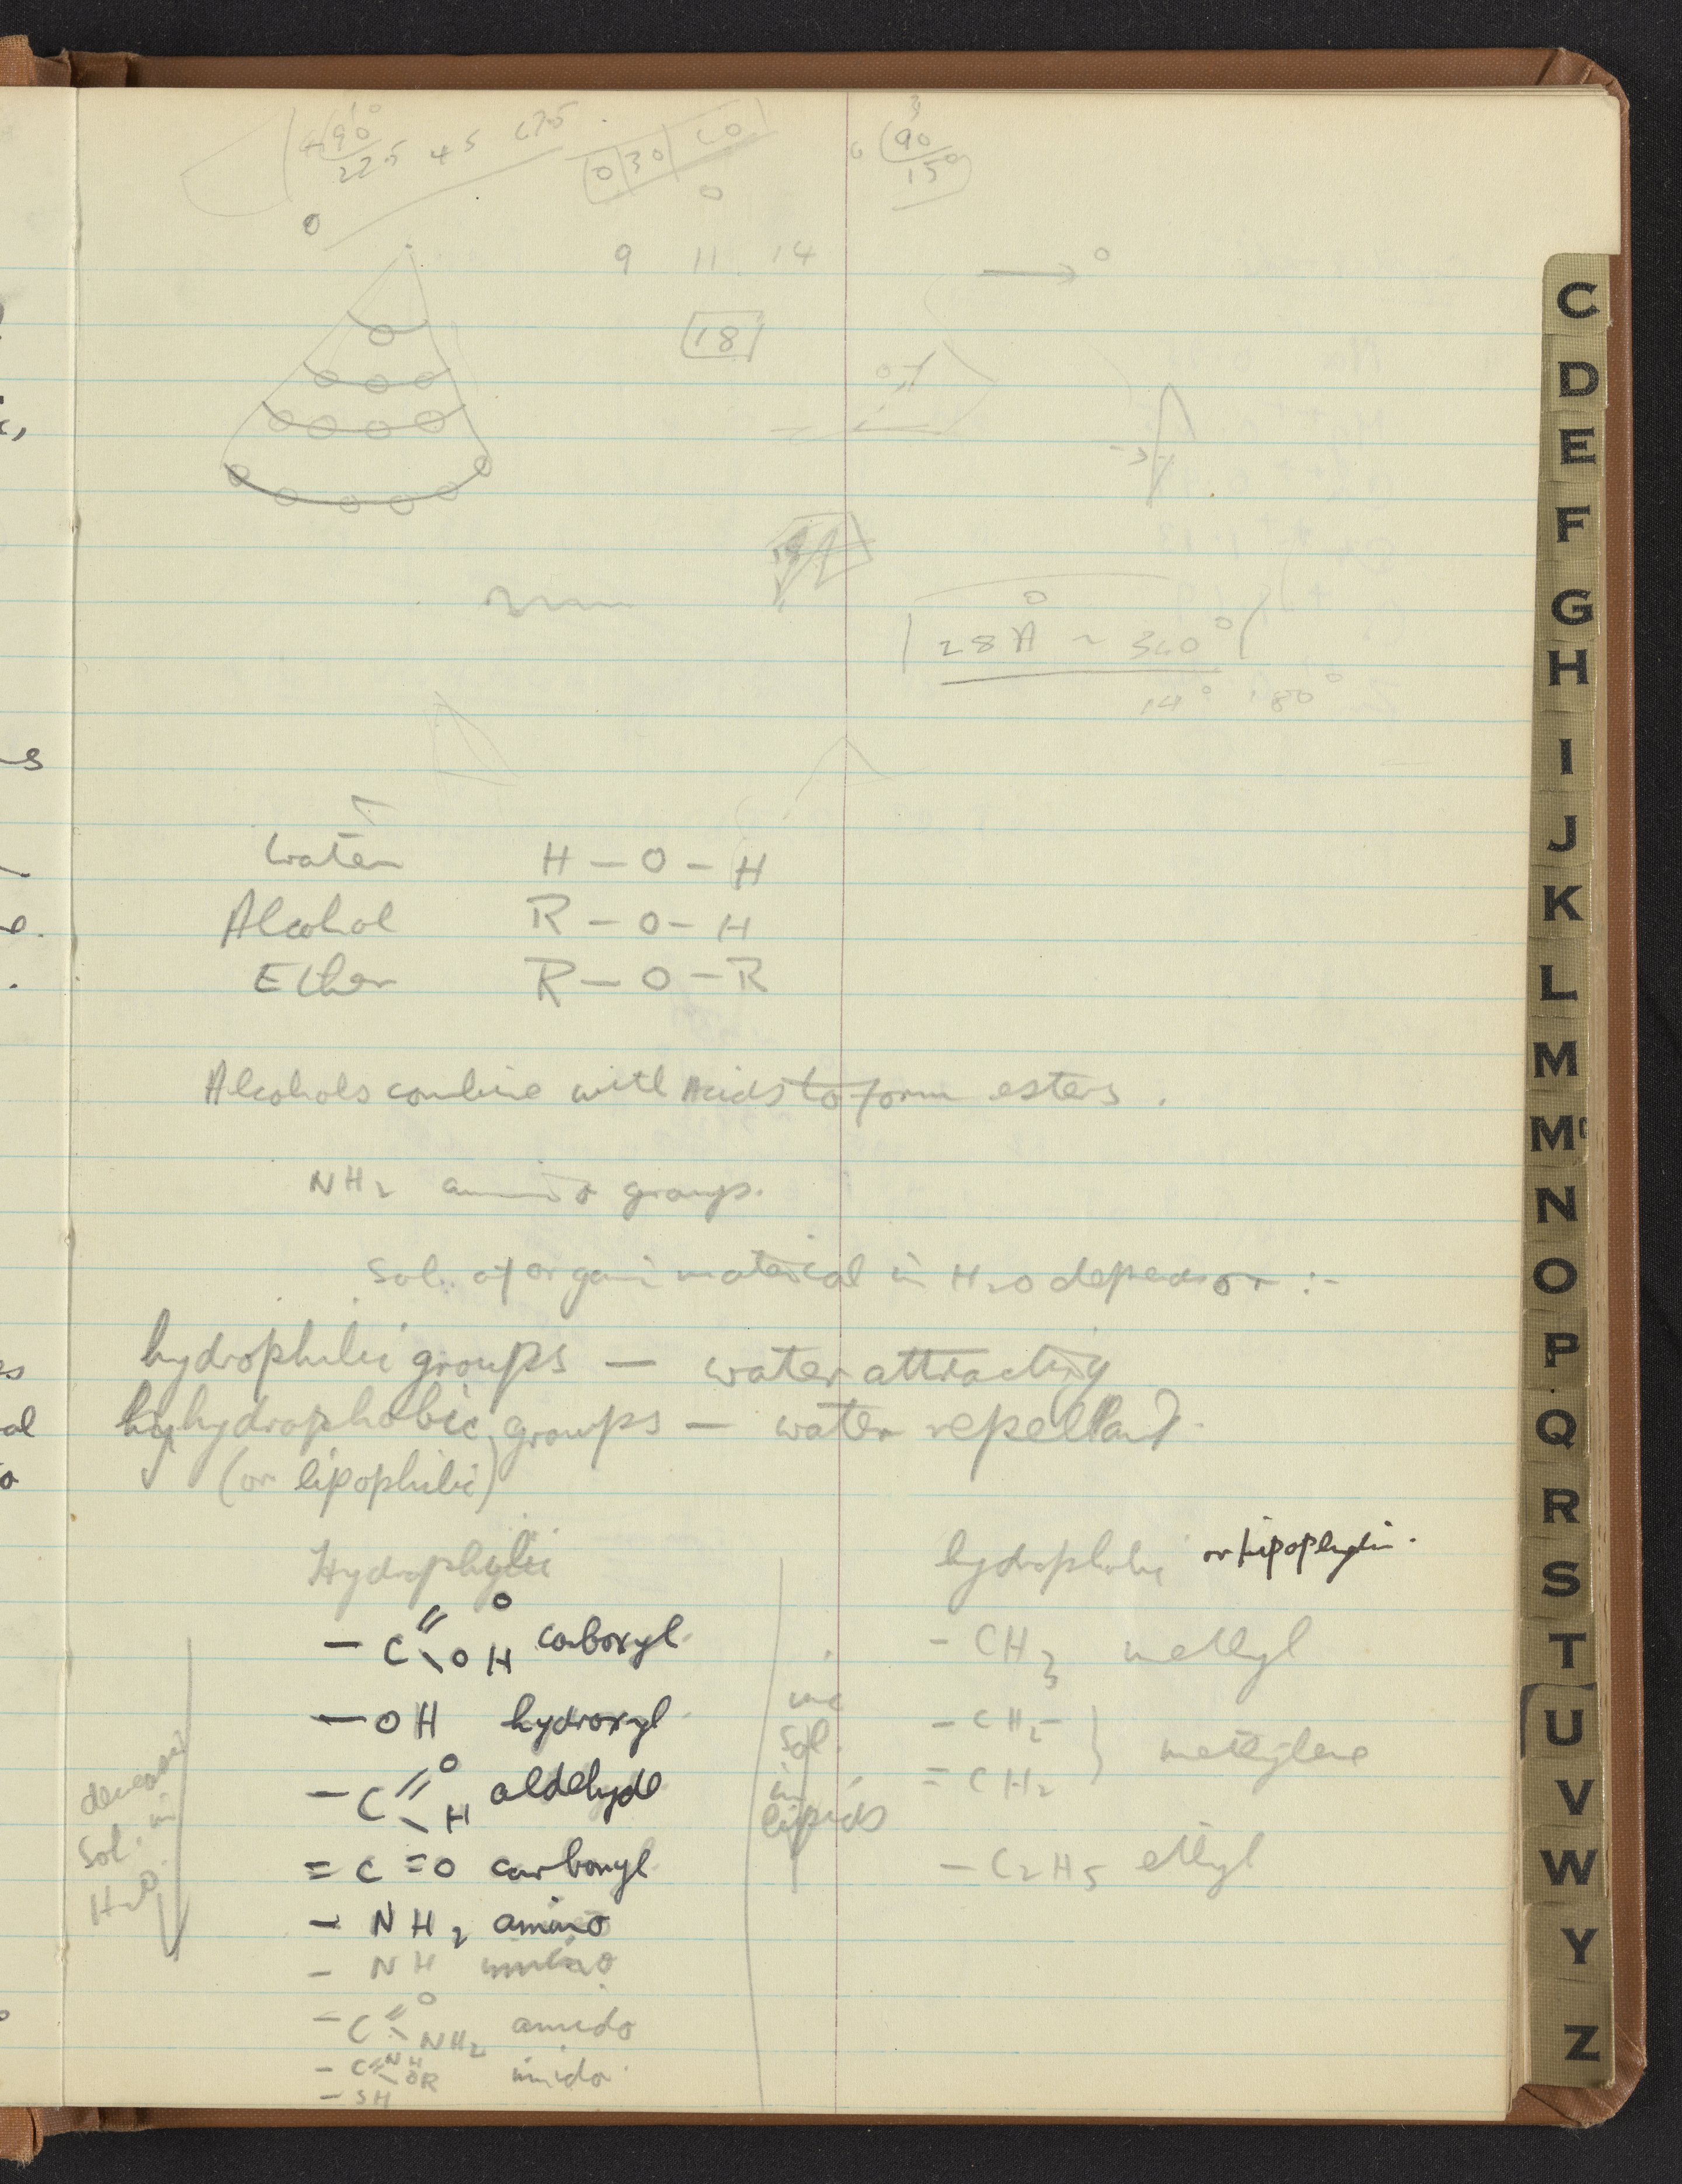 90
22.5 45 67.5
0 30 60
0
3
6 90
15°
9 11 14
18
28 Å ~ 360°
14° 180°
Water H – O – H
Alcohol R – O – H
Ether R – O – R
Alcohols combine with Acids to form esters.
NH2 amino group.
Sol. of organic material in H2O depends on :-
hydrophilic groups — water attracting
hydrophobic groups — water repellant.
(or lipophilic)
Hydrophylic
– C O OH carboxyl.
– OH hydroxyl.
– C O H aldehyde
= C = O carbonyl.
– NH2 amino
– NH imino
– C O NH2 amido
– C NH OR imido
– SH
decreases
sol. in
H2O.
inc
sol.
in
lipids
hydrophobic or lipophylic.
– CH3 methyl
– CH2 –
= CH2 } methylene
– C2H5 ethyl
C
D
E
F
G
H
I
J
K
L
M
Mc
N
O
P
Q
R
S
T
U
V
W
Y
Z